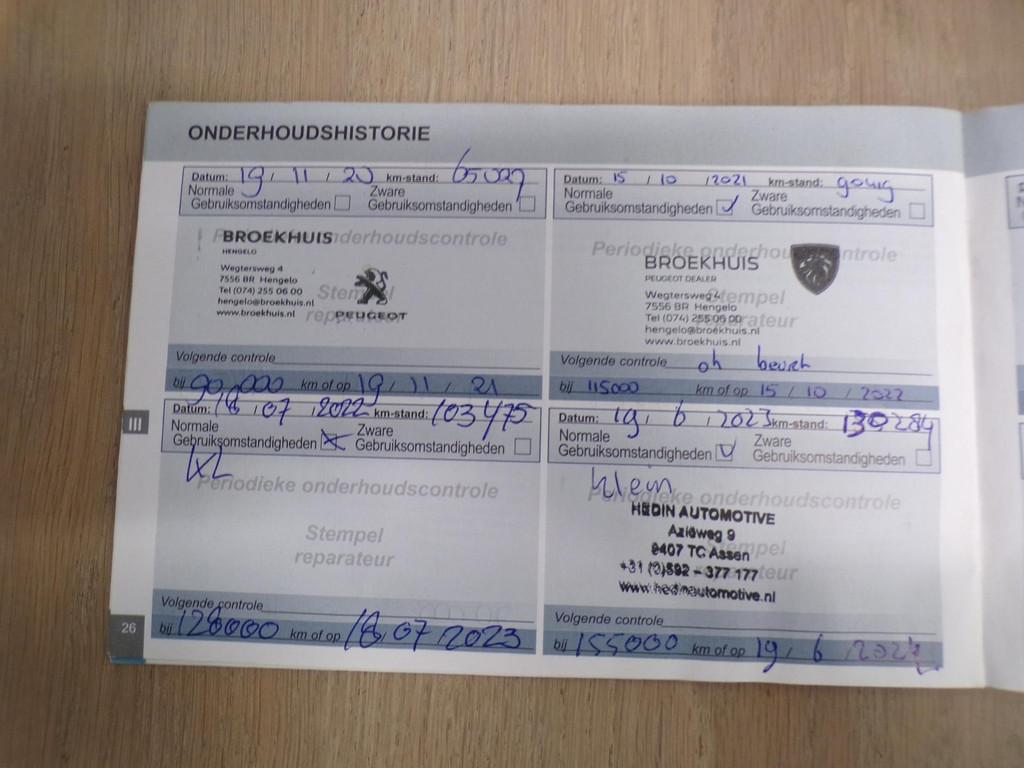 ONDERHOUDSHISTORIE
Datum: 19 / 11 / 20 km-stand:
Normale Gebruiksomstandigheden
Zware Gebruiksomstandigheden
Periodieke onderhoudscontrole
BROEKHUIS
HENGELO
Wegtersweg 4
7556 BR Hengelo
Tel (074) 255 06 00
hengelo@broekhuis.nl
www.broekhuis.nl
PEUGEOT
Stempel
reparateur
Volgende controle
bij 90,000 km of op 19 / 11 / 21
Datum: 15 / 10 / 2021 km-stand:
Normale Gebruiksomstandigheden
Zware Gebruiksomstandigheden
Periodieke onderhoudscontrole
BROEKHUIS
PEUGEOT DEALER
Wegtersweg 4
7556 BR Hengelo
Tel (074) 255 06 00
hengelo@broekhuis.nl
www.broekhuis.nl
Stempel
reparateur
Volgende controle oh beurt
bij 115000 km of op 15 / 10 / 2022
Datum: 18 / 07 / 2022 km-stand: 103475
Normale Gebruiksomstandigheden
Zware Gebruiksomstandigheden
Periodieke onderhoudscontrole
Stempel
reparateur
Volgende controle
bij 128000 km of op 18/07/2023
Datum: 19 / 6 / 2023 km-stand: 130284
Normale Gebruiksomstandigheden
Zware Gebruiksomstandigheden
klein
Periodieke onderhoudscontrole
HEDIN AUTOMOTIVE
Aziëweg 9
9407 TC Assen
+31 (0)592 - 377 177
www.hedinautomotive.nl
Stempel
reparateur
Volgende controle
bij 155000 km of op 19 / 6 / 2024
III
26